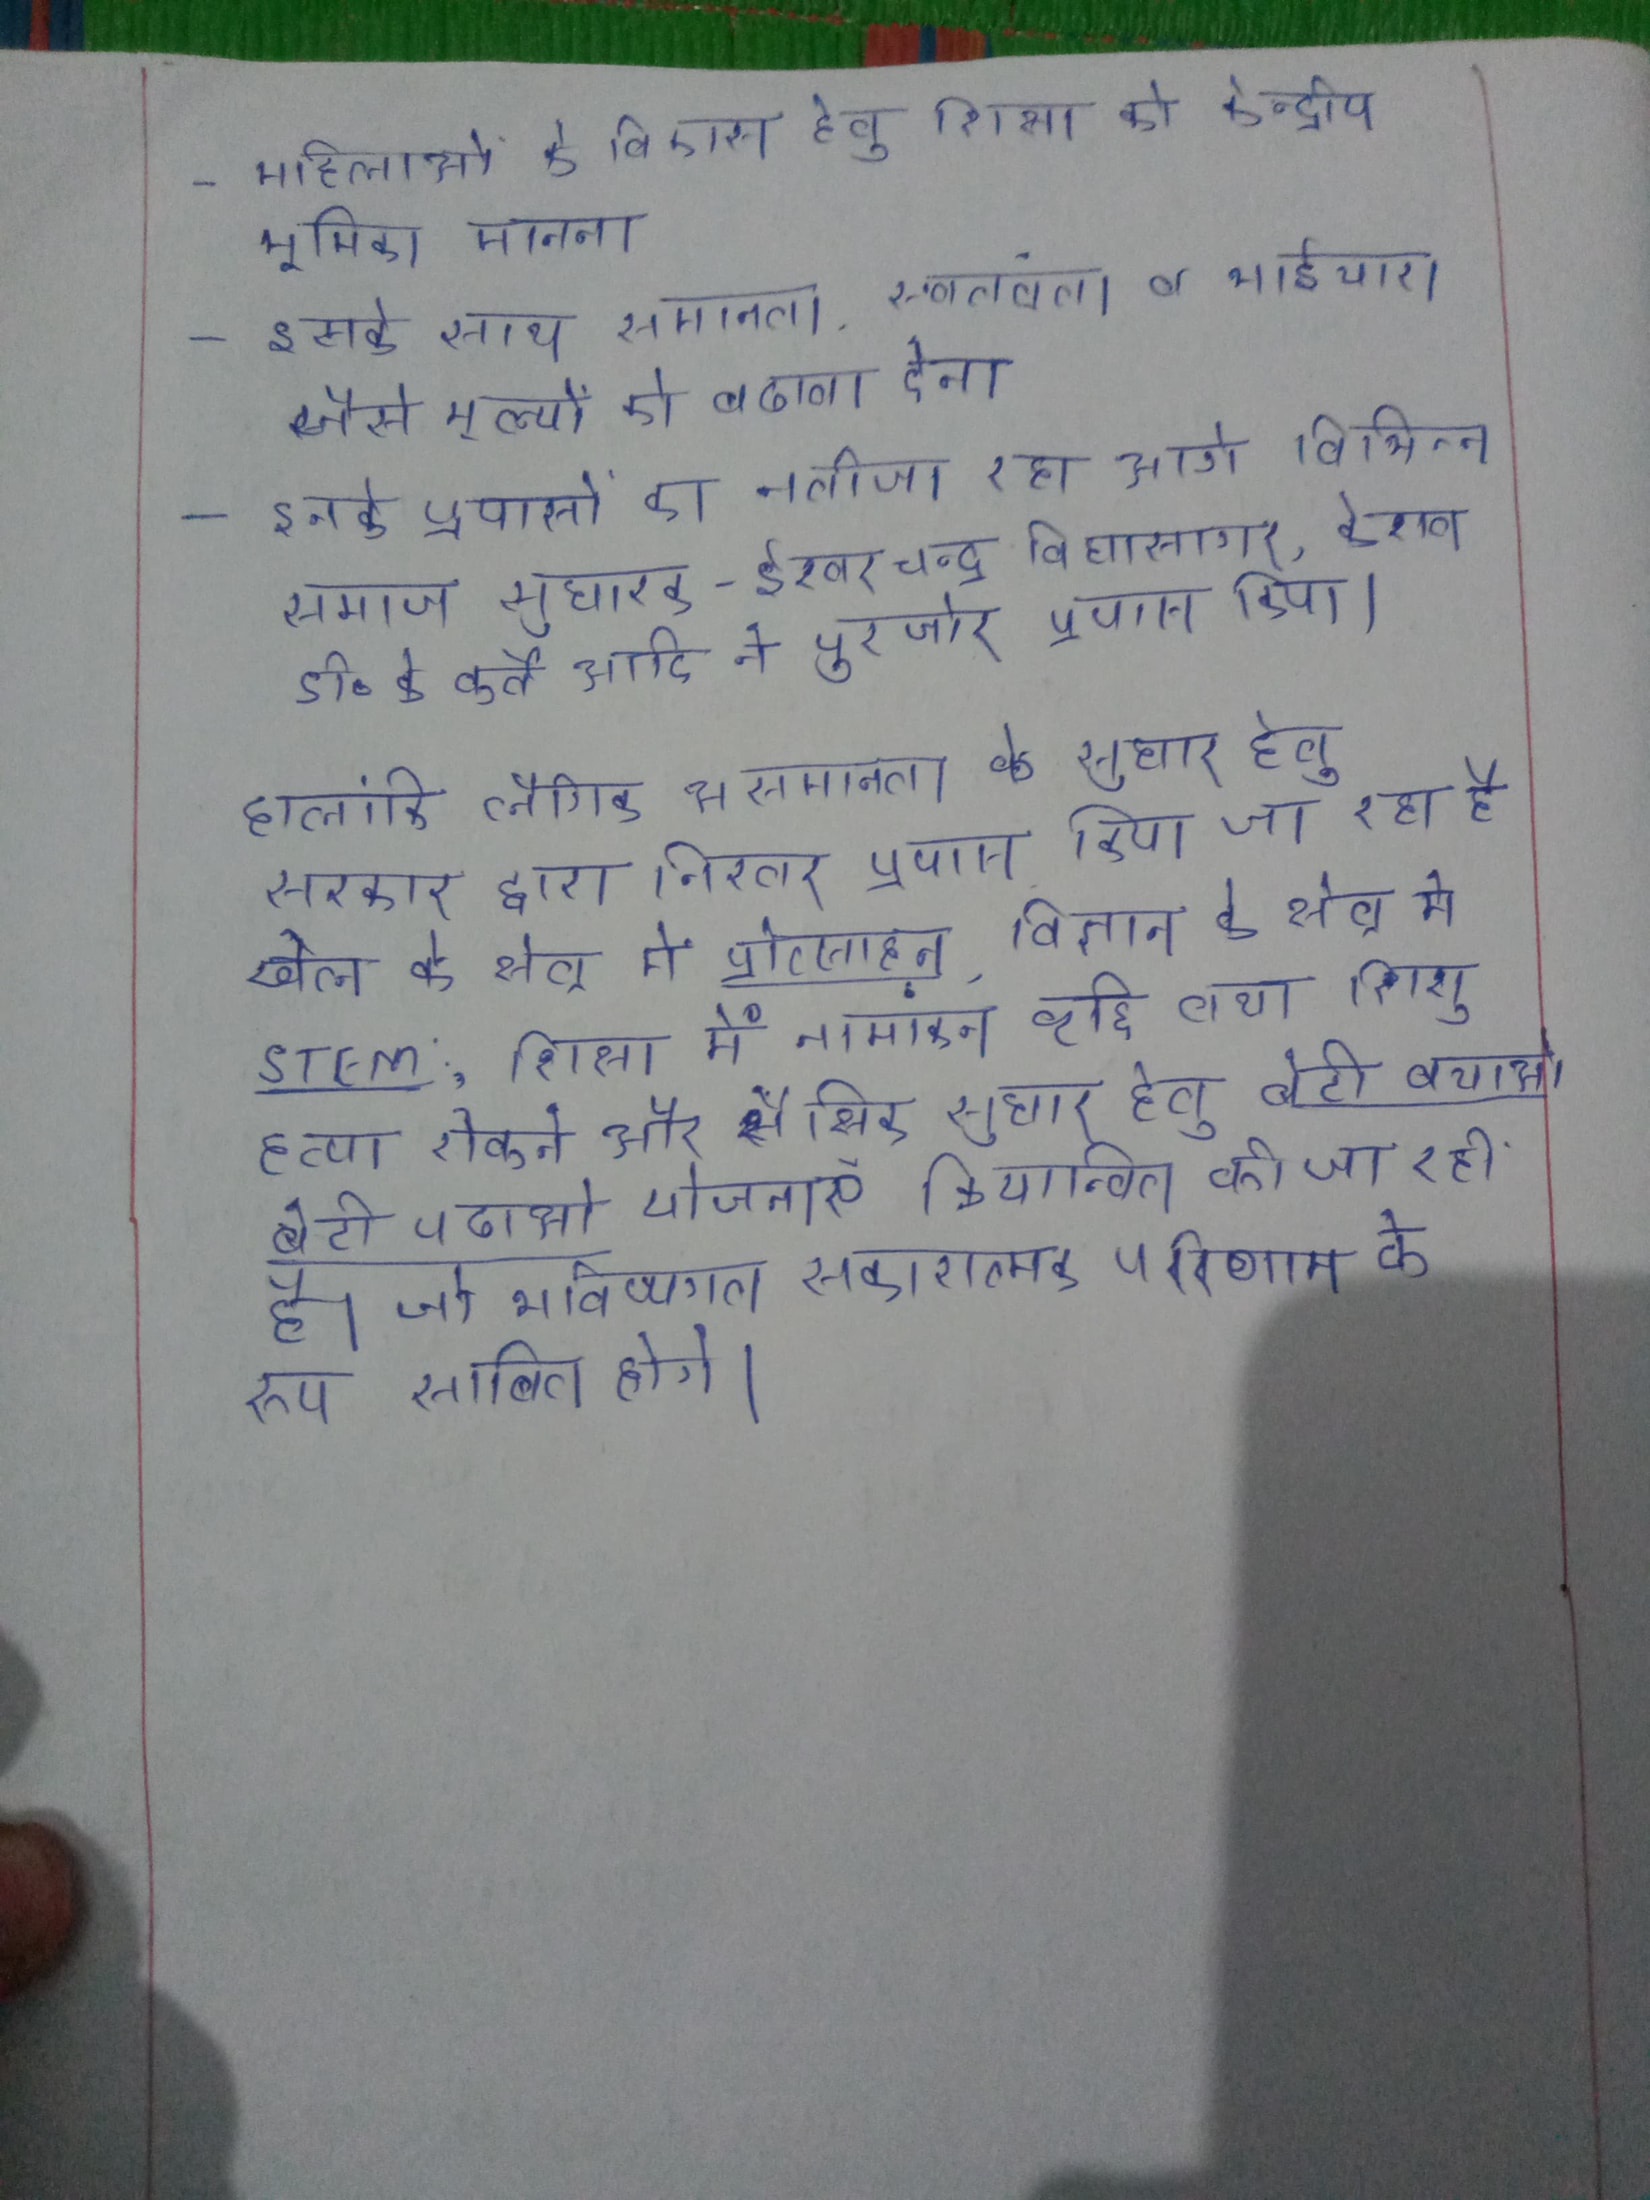 - महिलाओं के विकास हेतु शिक्षा को केन्द्रीय
भूमिका मानना
- इसके साथ समानता, स्वतंत्रता व भाईचारा
जैसे मूल्यों को बढावा देना
- इनके प्रयासों का नतीजा रहा आगे विभिन्न
समाज सुधारक - ईश्वरचन्द्र विद्यासागर, केशव
डी॰ के कर्वे आदि ने पुरजोर प्रयास किया।
हालांकि लैंगिक असमानता के सुधार हेतु
सरकार द्वारा निरतर प्रयास किया जा रहा है
खेल के क्षेत्र मे प्रोत्साहन, विज्ञान के क्षेत्र मे
STEM, शिक्षा में नामांकन वृद्दि तथा शिशु
हत्या रोकने और शैक्षिक सुधार हेतु बेटी बचाओ
बेटी पढाओ योजनाएँ क्रियान्वित की जा रही
है। जो भविष्यगत सकारात्मक परिणाम के
रूप साबित होगे।